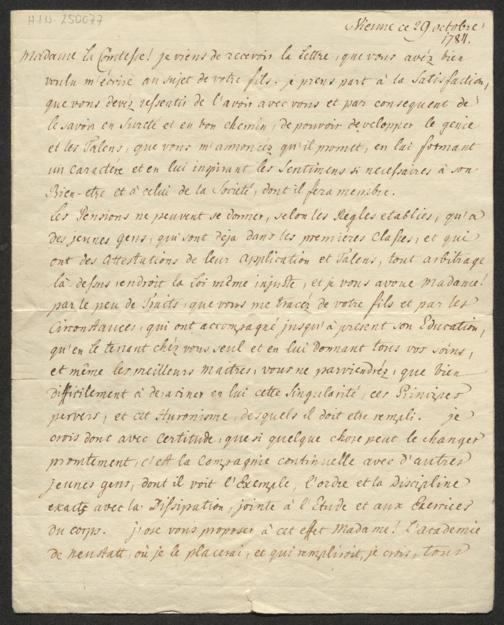 H.I.N. 250077
Vienne ce 29 octobre
1784.
Madame la Comtesse! je viens de recevoir la Lettre, que vous avéz bien
voulu m'écrire au sujet de votre fils. je prens part à la Satisfaction,
que vous devez ressentir de l'avoir avec vous et par consequent de
le savoir en Sureté et en bon chemin, de pouvoir developper le genie
et les Talens, que vous m'annoncez qu'il promet, en lui formant
un caractére et en lui inspirant les Sentimens si necessaires à son
Bien-etre et à celui de la Societé, dont il sera membre.
Les Pensions ne peuvent se donner, selon les Régles etablies, qu'a
des jeunes gens, qui sont déja dans les premières Classes, et qui
ont des Attestations de leur application et Talens, tout arbitrage
là dessus rendroit la Loi même injuste, et je vous avoue Madame!
par le peu de Traits, que vous me tracéz de votre fils et par les
Circonstances, qui ont accompagné jusqu'à present son Education,
qu'en le tenant chéz vous seul et en lui donnant tous vos soins,
et même les meilleurs maitres, vous ne parviendréz, que bien
difficilement à deraciner en lui cette Singularité, ces Prinzipes
pervers, et cet Huronisme, desquels il doit etre rempli. je
crois dont avec certitude, que si quelque chose peut le changer
promtement, c'est la Compagnie continuelle avec d'autres
jeunes gens, dont il voit l'Exemple, l'ordre et la Discipline
exacte avec la Dissipation, jointe à l'Etude et aux Exercices
du corps. j'ose vous proposer à cet effet Madame! L'academie
de neustatt, où je le placerai, et qui rempliroit, je crois, tous